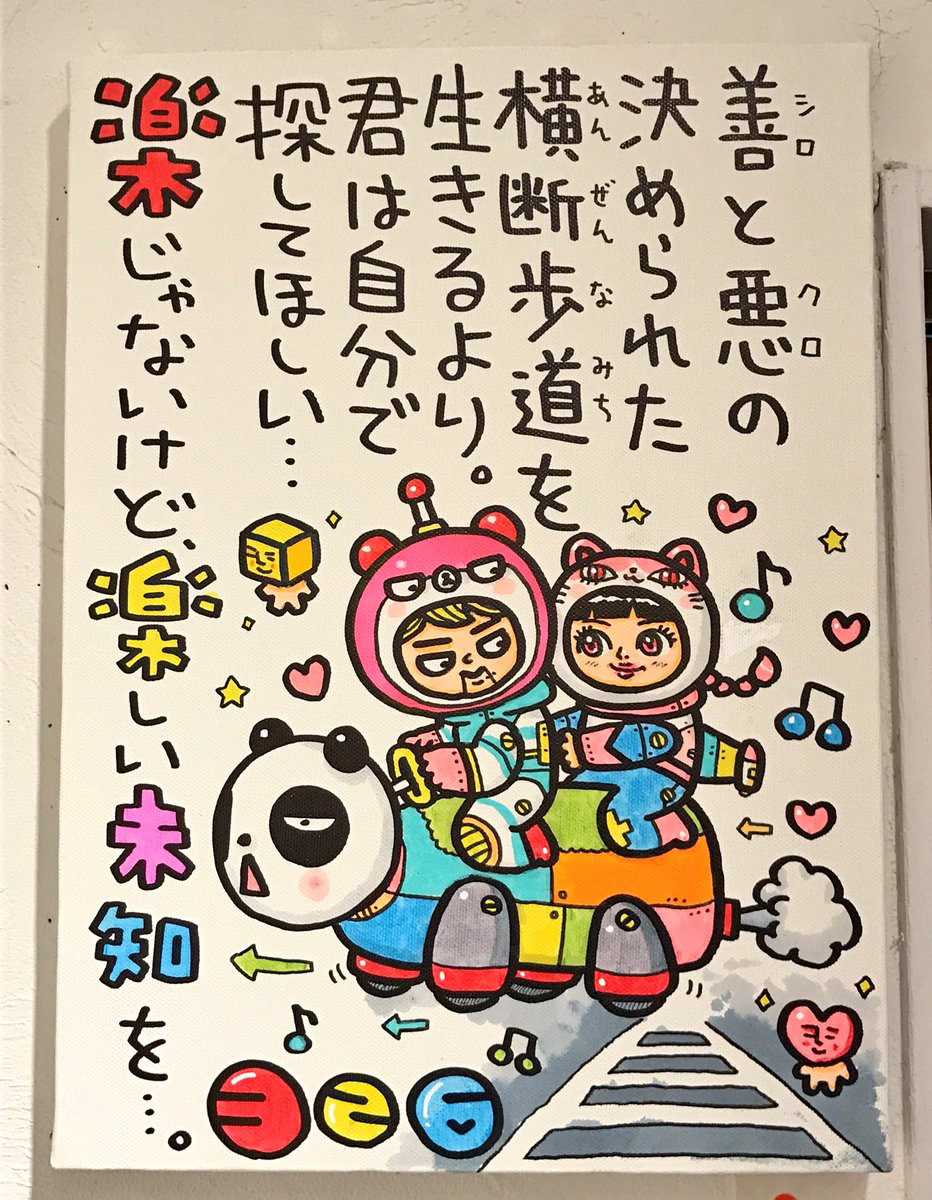 善と悪の
シロ
クロ
決められた
横断歩道を
あんぜんなみち
生きるより。
君は自分で
探してほしい…
楽じゃないけど、楽しい未知を…。
326